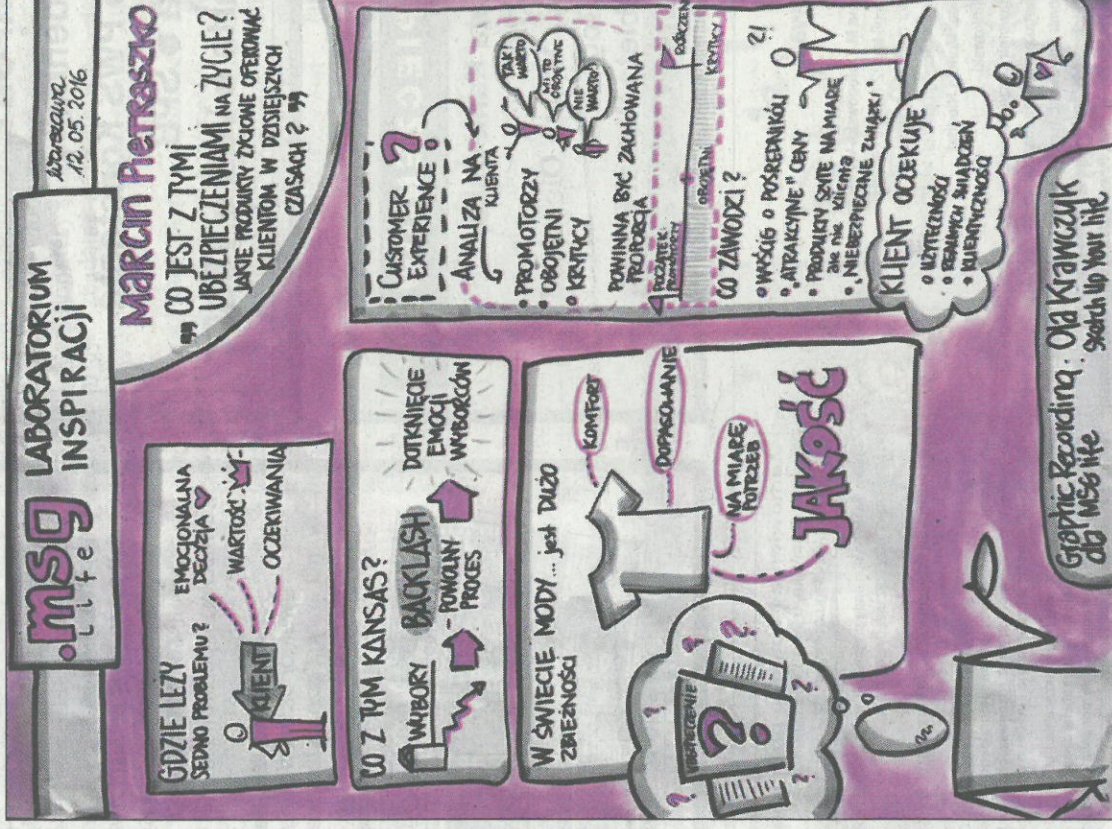 .msg
Life
LABORATORIUM
INSPIRACJI
Warszawa
12.05.2016
Marcin Pietraszko
„ CO JEST Z TYMI
UBEZPIECZENIAMI NA ŻYCIE?
JAKIE PRODUKTY ŻYCIOWE OFEROWAĆ
KLIENTOM W DZISIEJSZYCH
CZASACH? ”
GDZIE LEŻY
SEDNO PROBLEMU?
KLIENT
EMOCJONALNA
DECYZJA
WARTOŚĆ
OCZEKIWANIA
CO Z TYM KANSAS?
WYBORY
BACKLASH
- POWOLNY
PROCES
DOTKNIĘCIE
EMOCJI
WYBORCÓW
W ŚWIECIE MODY... jest DUŻO
ZBIEŻNOŚCI
KOMFORT
DOPASOWANIE
NA MIARĘ
POTRZEB
JAKOŚĆ
UBEZPIECZENIE
?
? ? ? ? ? ?
CUSTOMER
EXPERIENCE ?
ANALIZA NA
KLIENTA
• PROMOTORZY
• OBOJĘTNI
• KRYTYCY
TAK!
WARTO
MI TO
OBOJĘTNE
NIE
WARTO!
POWINNA BYĆ ZACHOWANA
PROPORCJA
POCZĄTEK
PROMOTORZY
OBOJĘTNI
KRYTYCY
CO ZAWODZI?
• WYŚCIG O POŚREDNIKÓW
• „ATRAKCYJNE” CENY
• PRODUKTY SZYTE NA MIARĘ
ale nie klienta
• „NIEBEZPIECZNE ZWIĄZKI”
?!
KLIENT OCZEKUJE
• UŻYTECZNOŚCI
• REALNYCH ŚWIADCZEŃ
• KLIENTYCZNOŚCI
Graphic Recording: Ola Krawczyk
dla MSG life Sketch Up Your life